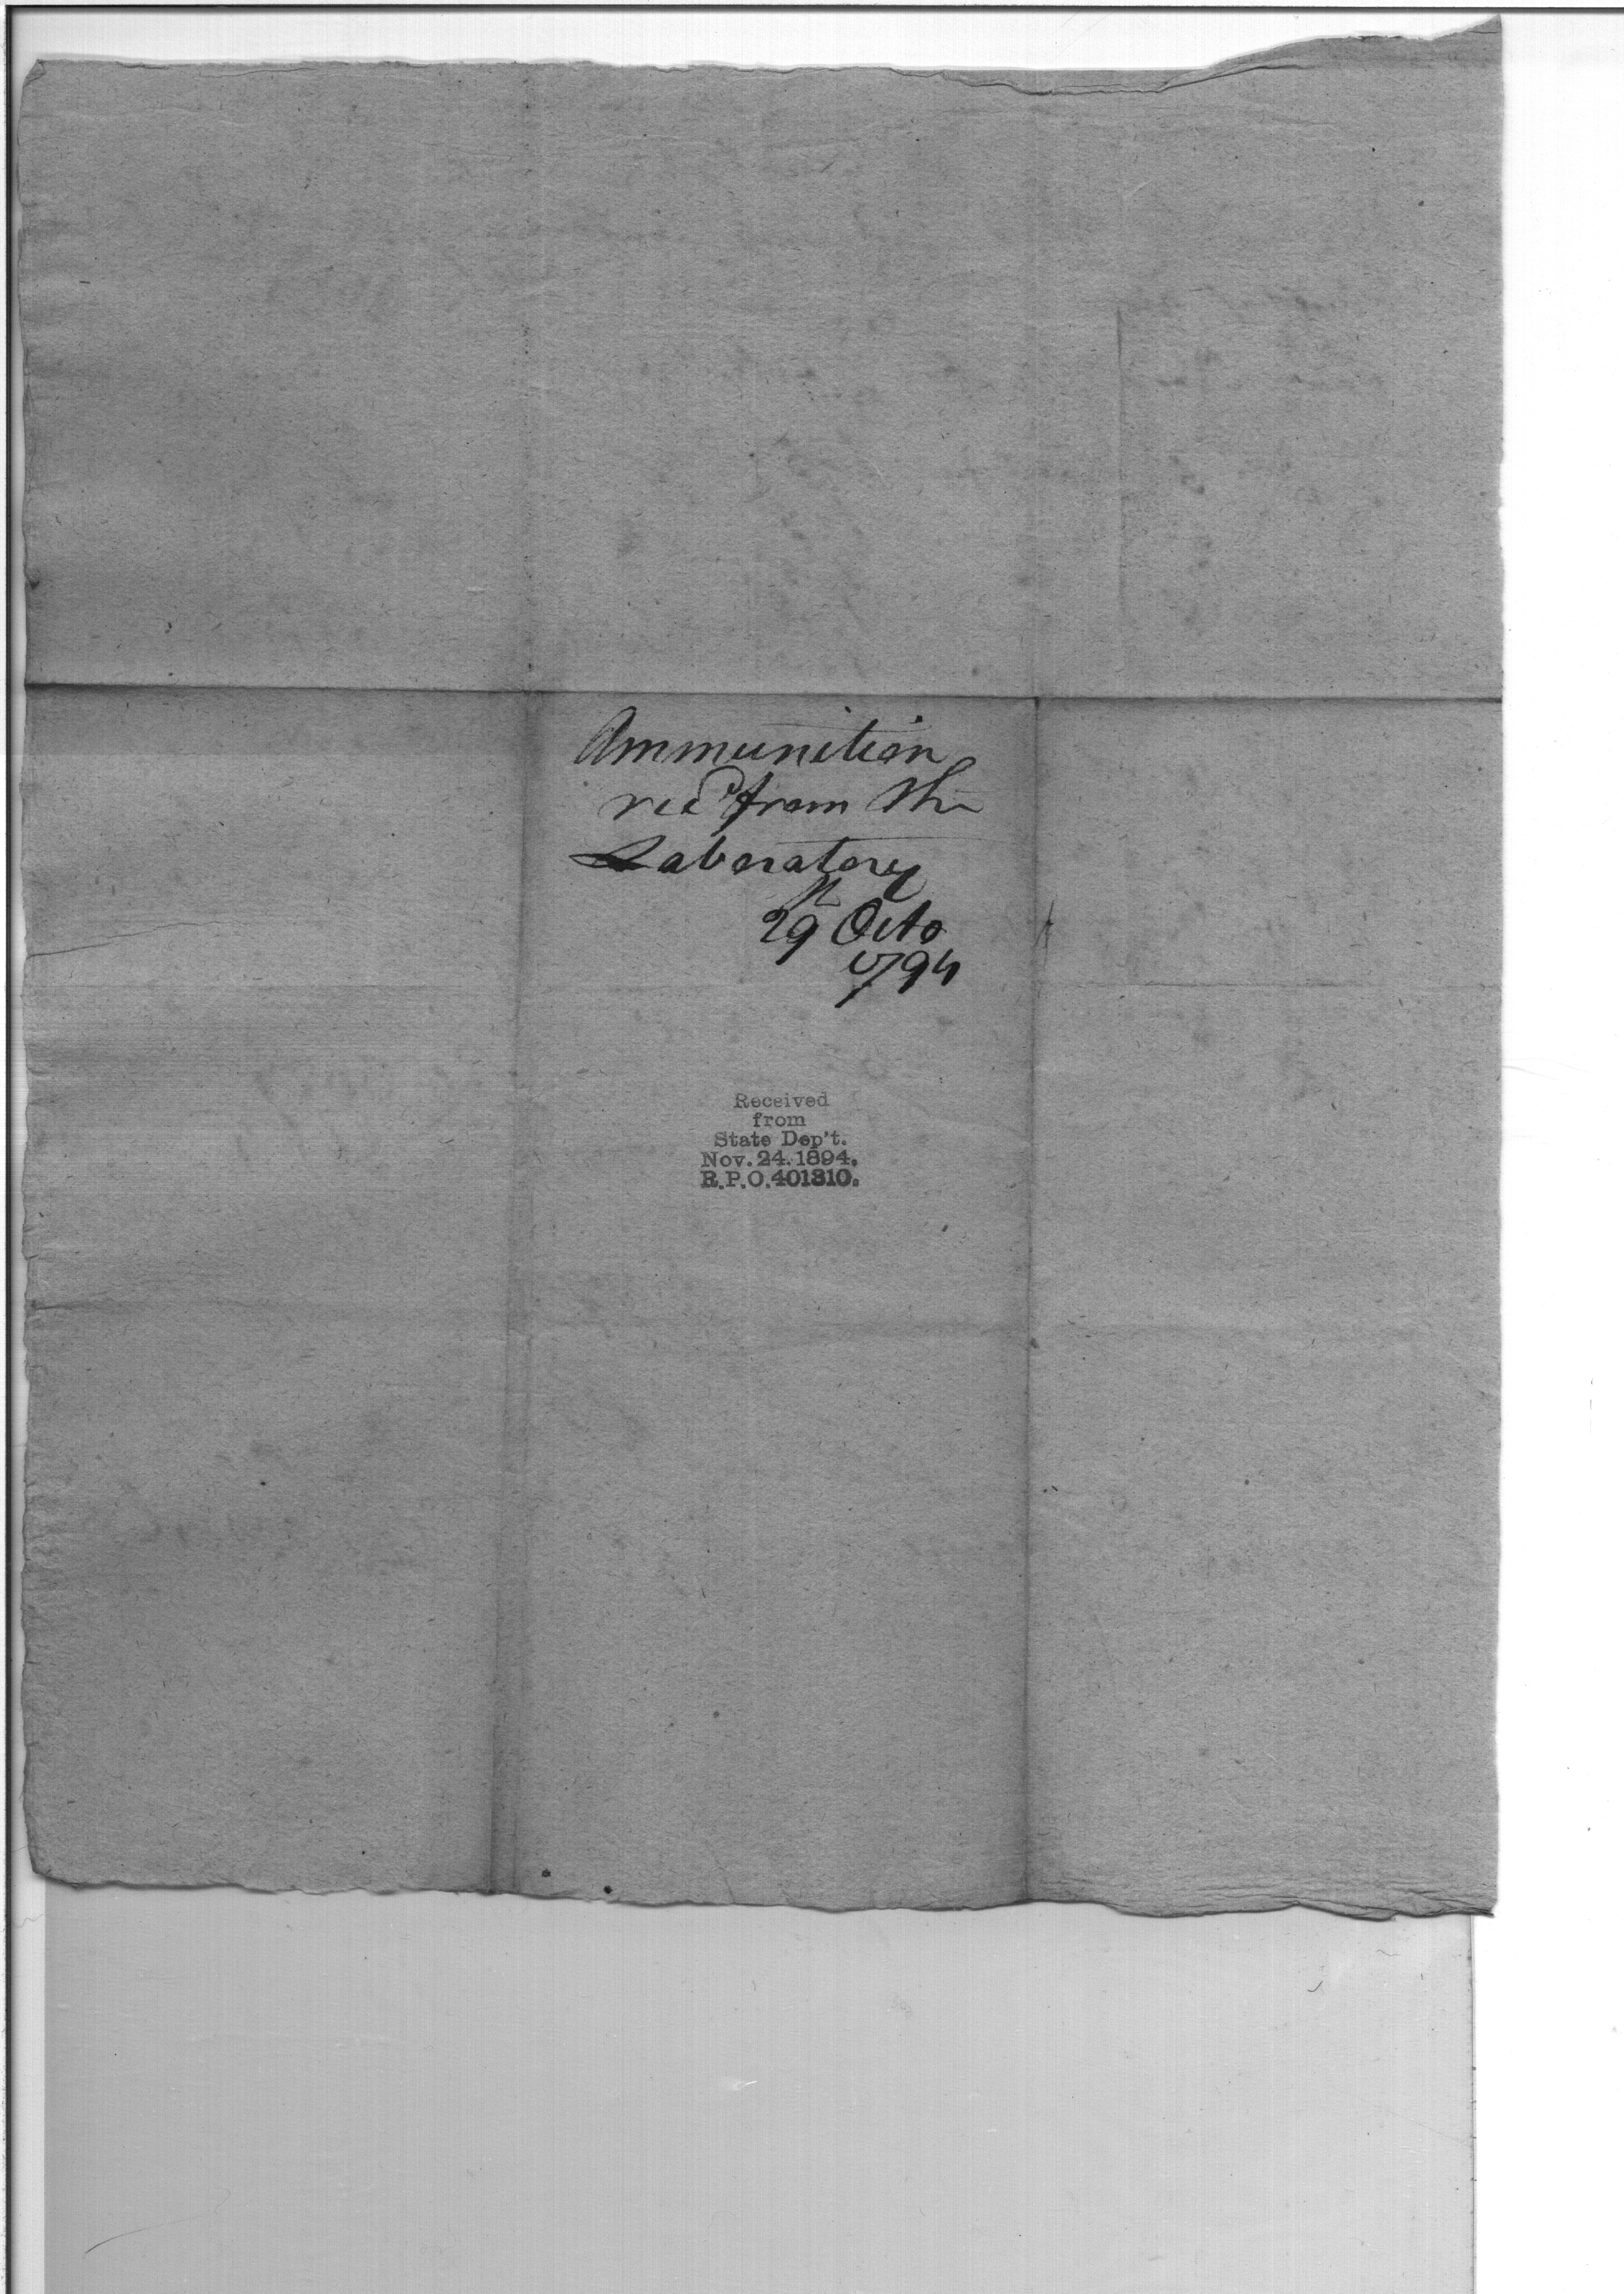 Ammunition
recd from the
Laboratory
29th Octo
1794
Received
from
State Dep't.
Nov. 24. 1894.
R.P.O. 401310.